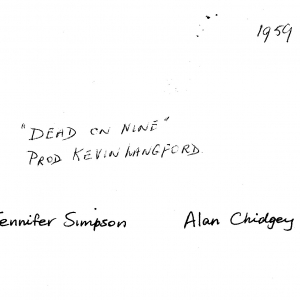 1959
"DEAD ON NINE"
PROD KEVIN LANGFORD.
ennifer Simpson Alan Chidgey